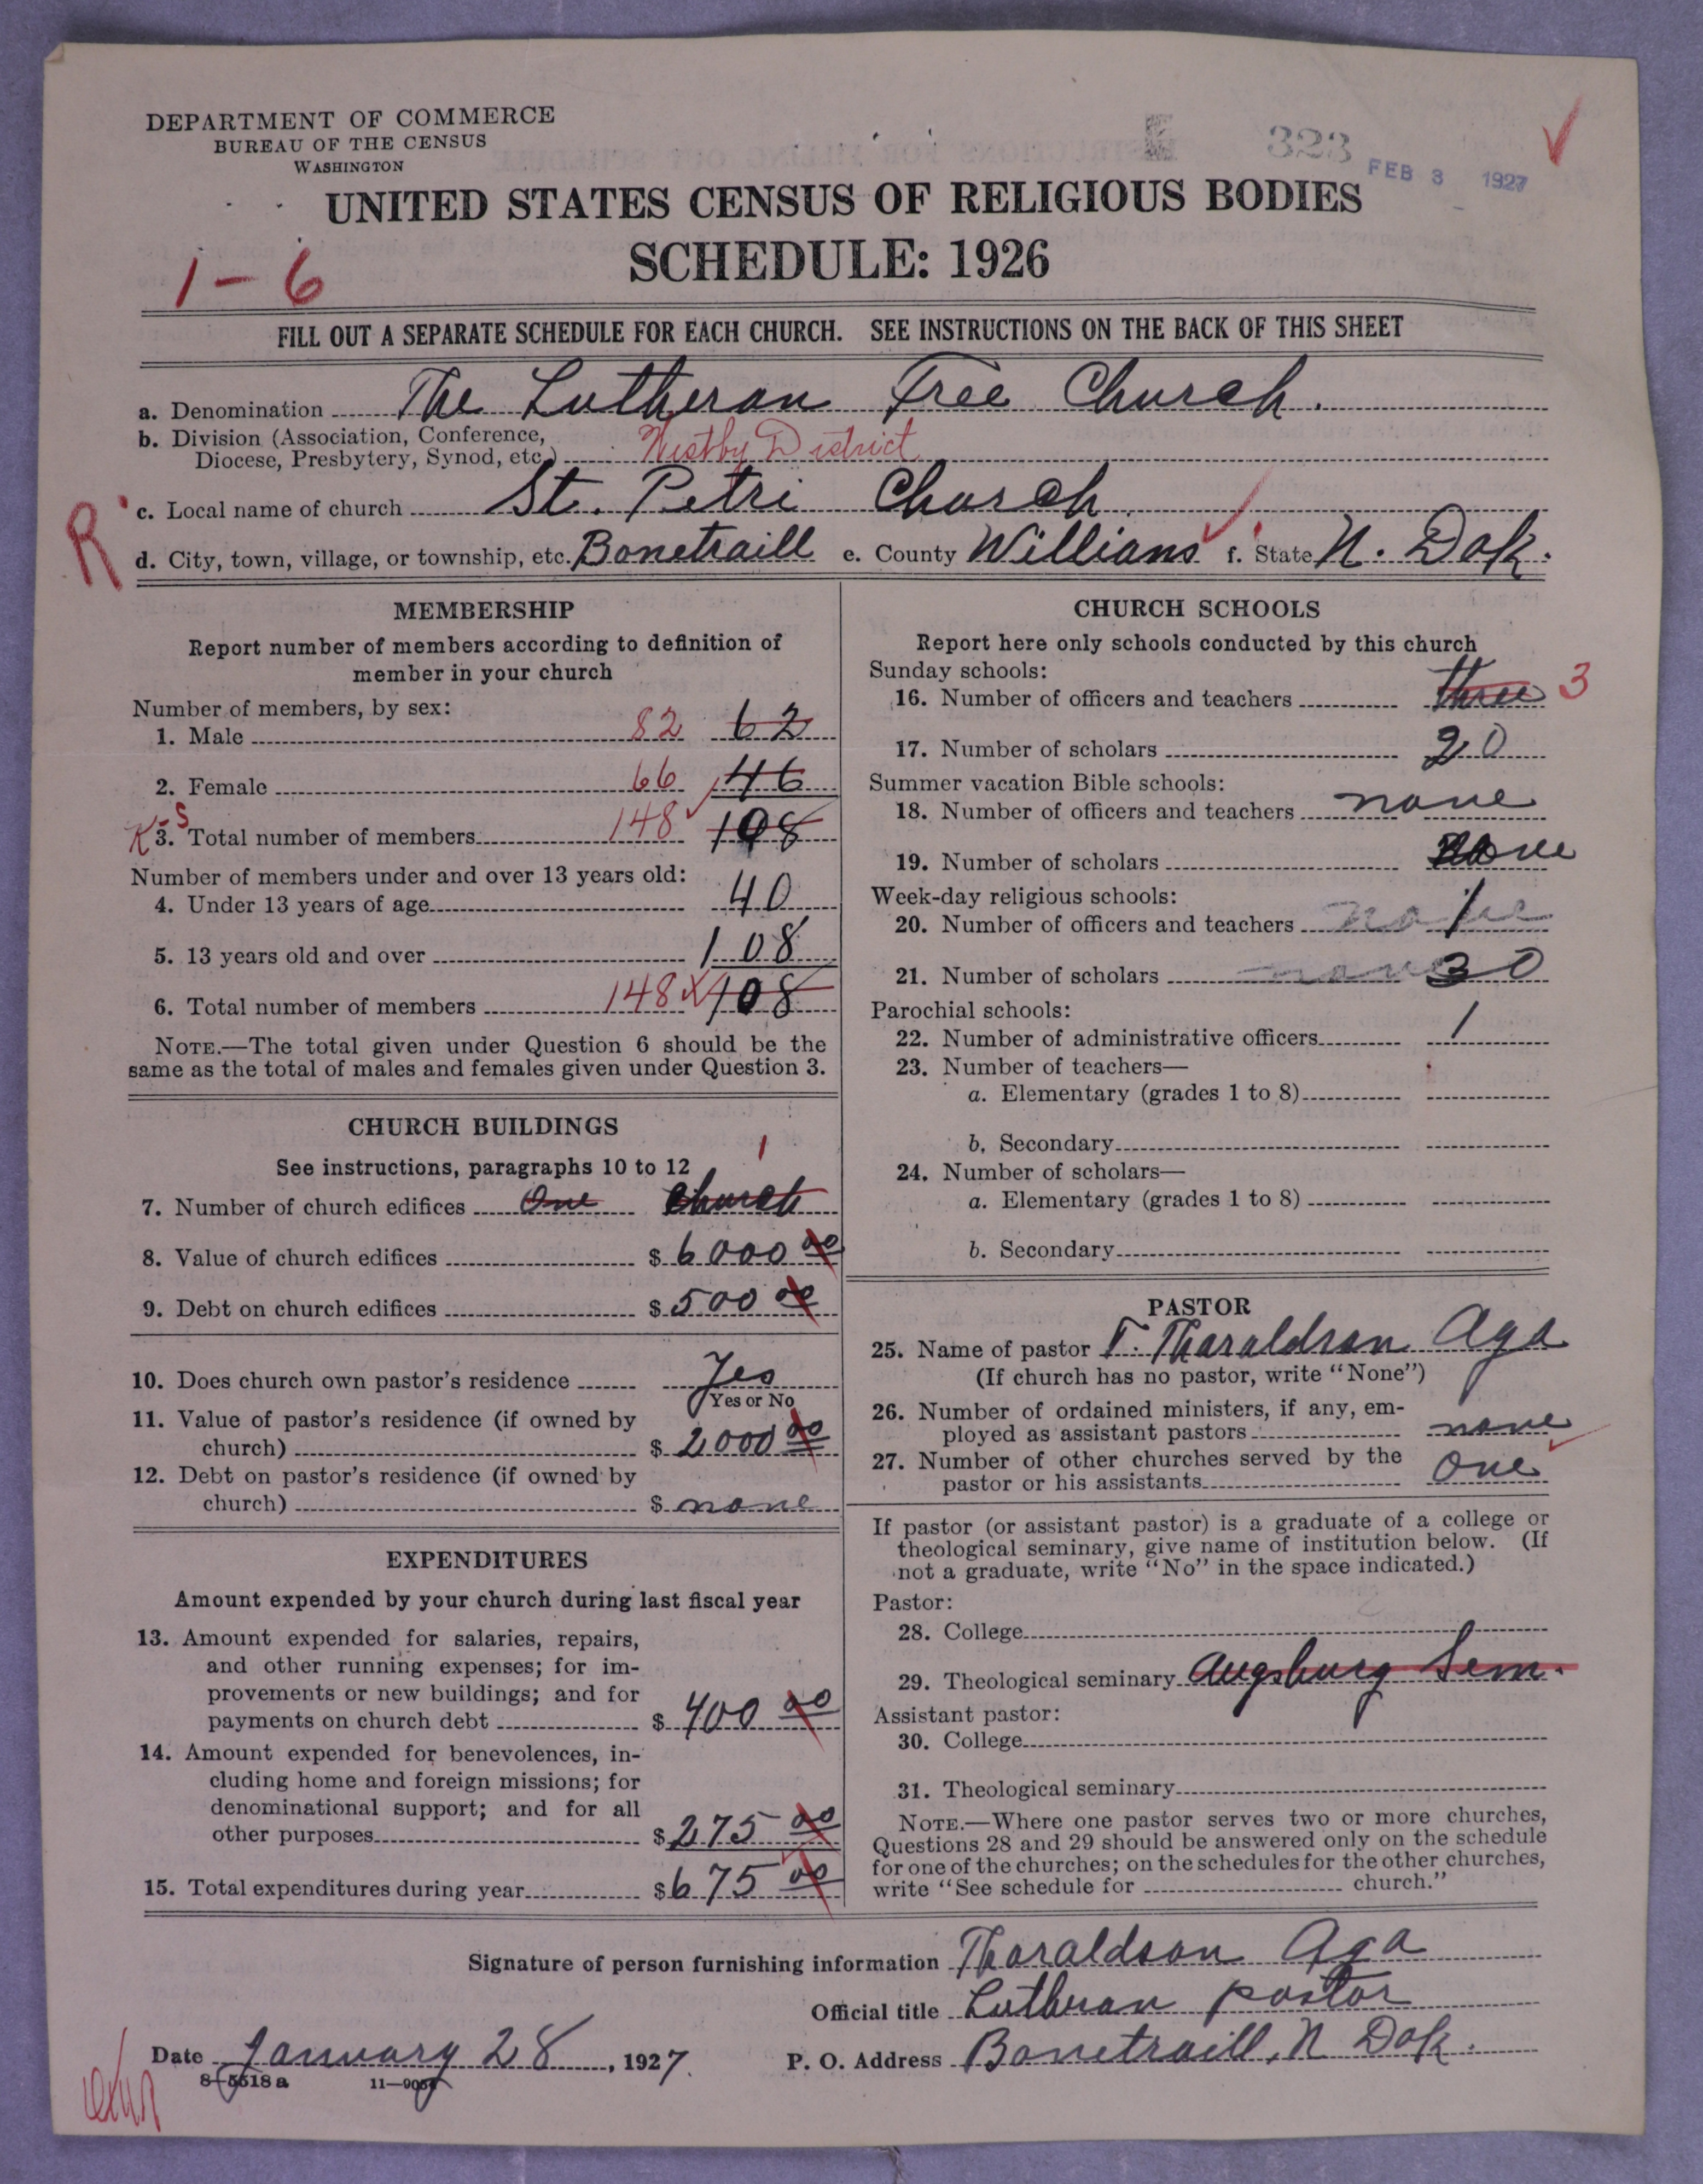 DEPARTMENT OF COMMERCE
BUREAU OF THE CENSUS
WASHINGTON
323
FEB 3 1927
UNITED STATES CENSUS OF RELIGIOUS BODIES
SCHEDULE: 1926
1-6
FILL OUT A SEPARATE SCHEDULE FOR EACH CHURCH. SEE INSTRUCTIONS ON THE BACK OF THIS SHEET
a. Denomination The Lutheran Free Church.
b. Division (Association, Conference,
Diocese, Presbytery, Synod, etc.) Westby District
R c. Local name of church St. Petri Church
d. City, town, village, or township, etc. Bonetraill e. County Willians f. State N. Dak.
MEMBERSHIP
Report number of members according to definition of
member in your church
Number of members, by sex:
1. Male 82 62
2. Female 66 46
3. Total number of members 148 108
Number of members under and over 13 years old:
4. Under 13 years of age 40
5. 13 years old and over 108
6. Total number of members 148 108
NOTE.—The total given under Question 6 should be the
same as the total of males and females given under Question 3.
CHURCH BUILDINGS
See instructions, paragraphs 10 to 12
1
7. Number of church edifices One Church
8. Value of church edifices $ 6000 00
9. Debt on church edifices $ 500 00
10. Does church own pastor's residence Yes
Yes or No
11. Value of pastor's residence (if owned by
church) $ 2000 00
12. Debt on pastor's residence (if owned by
church) $ none
EXPENDITURES
Amount expended by your church during last fiscal year
13. Amount expended for salaries, repairs,
and other running expenses; for im-
provements or new buildings; and for
payments on church debt $ 400 00
14. Amount expended for benevolences, in-
cluding home and foreign missions; for
denominational support; and for all
other purposes $ 275 00
15. Total expenditures during year $ 675 00
CHURCH SCHOOLS
Report here only schools conducted by this church
Sunday schools:
16. Number of officers and teachers three 3
17. Number of scholars 20
Summer vacation Bible schools:
18. Number of officers and teachers none
19. Number of scholars none
Week-day religious schools:
20. Number of officers and teachers none 1
21. Number of scholars none 30
Parochial schools:
22. Number of administrative officers 1
23. Number of teachers—
a. Elementary (grades 1 to 8)
b. Secondary
24. Number of scholars—
a. Elementary (grades 1 to 8)
b. Secondary
PASTOR
25. Name of pastor T. Tharaldson Aga
(If church has no pastor, write "None")
26. Number of ordained ministers, if any, em-
ployed as assistant pastors none
27. Number of other churches served by the
pastor or his assistants One
If pastor (or assistant pastor) is a graduate of a college or
theological seminary, give name of institution below. (If
not a graduate, write "No" in the space indicated.)
Pastor:
28. College
29. Theological seminary Augsburg Sem.
Assistant pastor:
30. College
31. Theological seminary
NOTE.—Where one pastor serves two or more churches,
Questions 28 and 29 should be answered only on the schedule
for one of the churches; on the schedules for the other churches,
write "See schedule for church."
Signature of person furnishing information Tharaldson Aga
Official title Lutheran pastor
Date January 28, 1927. P. O. Address Bonetraill, N Dak.
8-5518a 11-9051